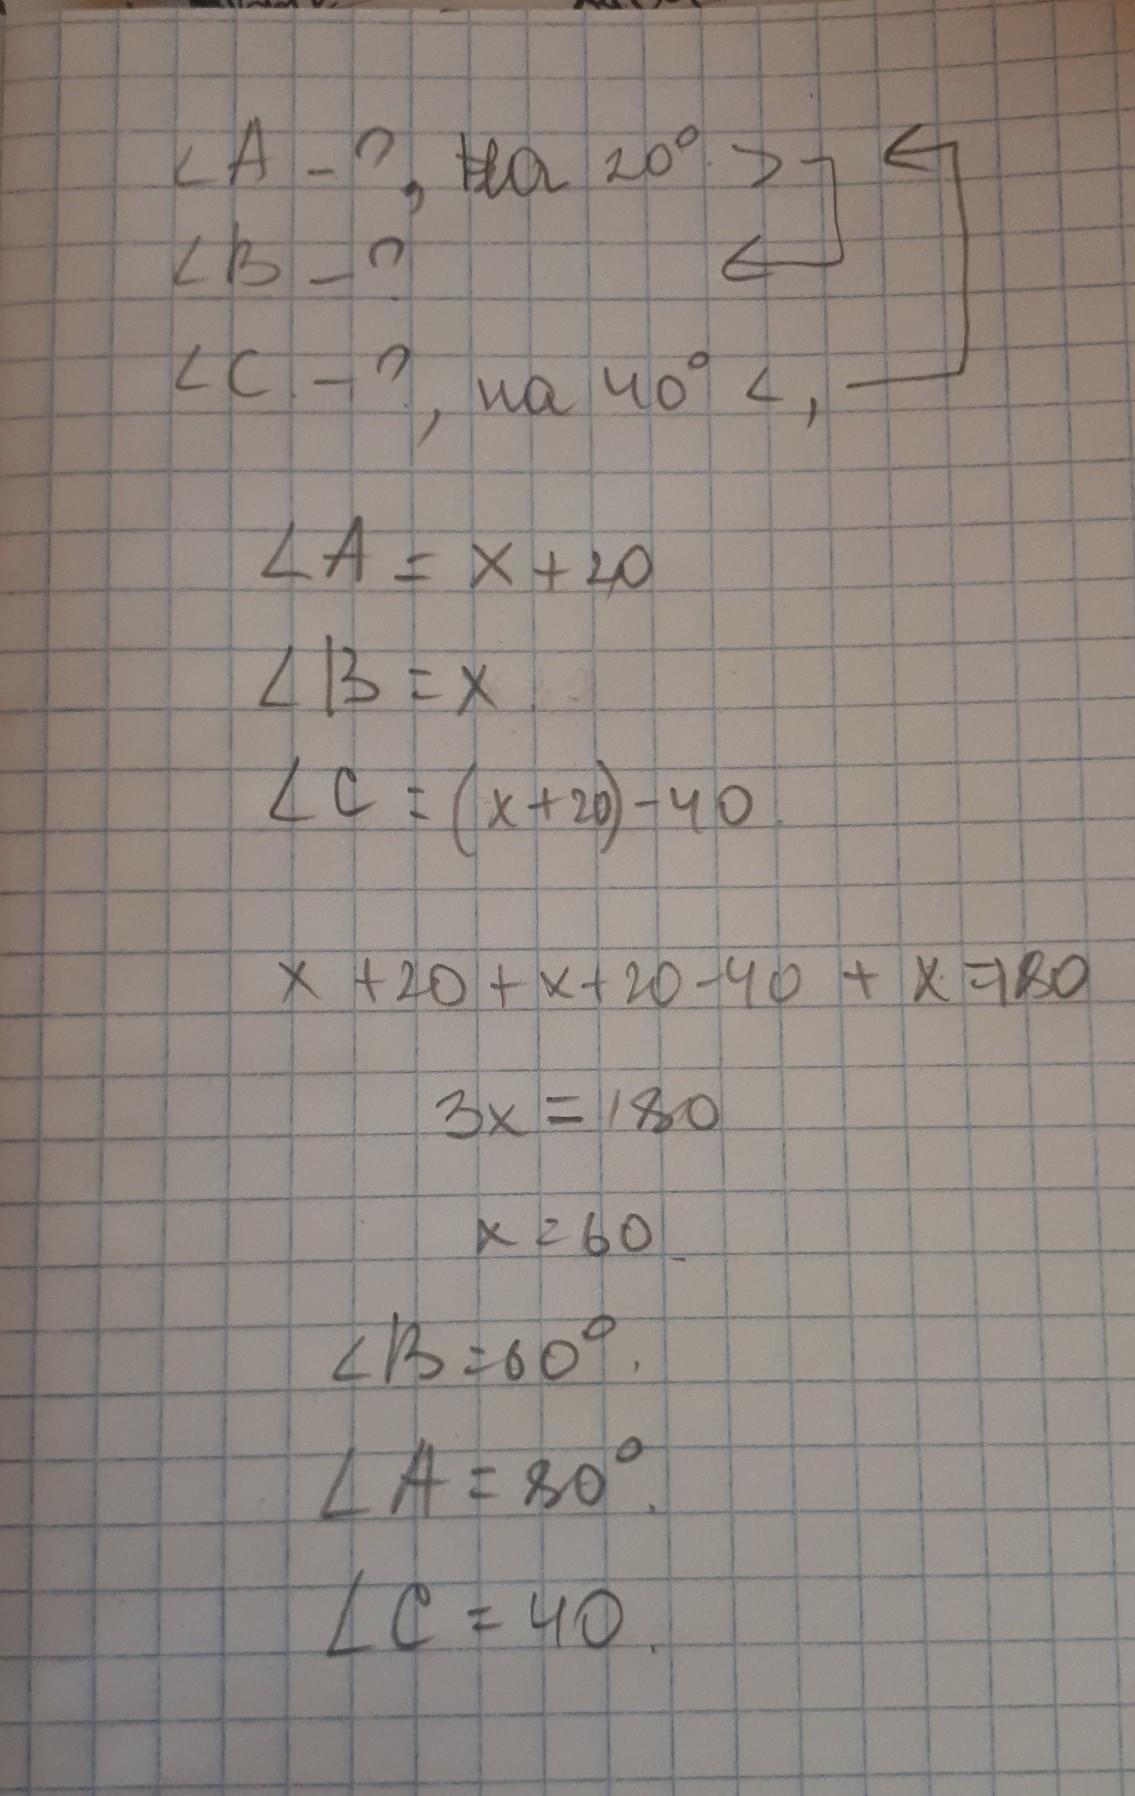 ∠A – ?, на 20° >
∠B – ?
∠C – ?, на 40° <,
∠A = x + 20
∠B = x
∠C = (x+20) - 40
x + 20 + x + 20 - 40 + x = 180
3x = 180
x = 60
∠B = 60°.
∠A = 80°.
∠C = 40.